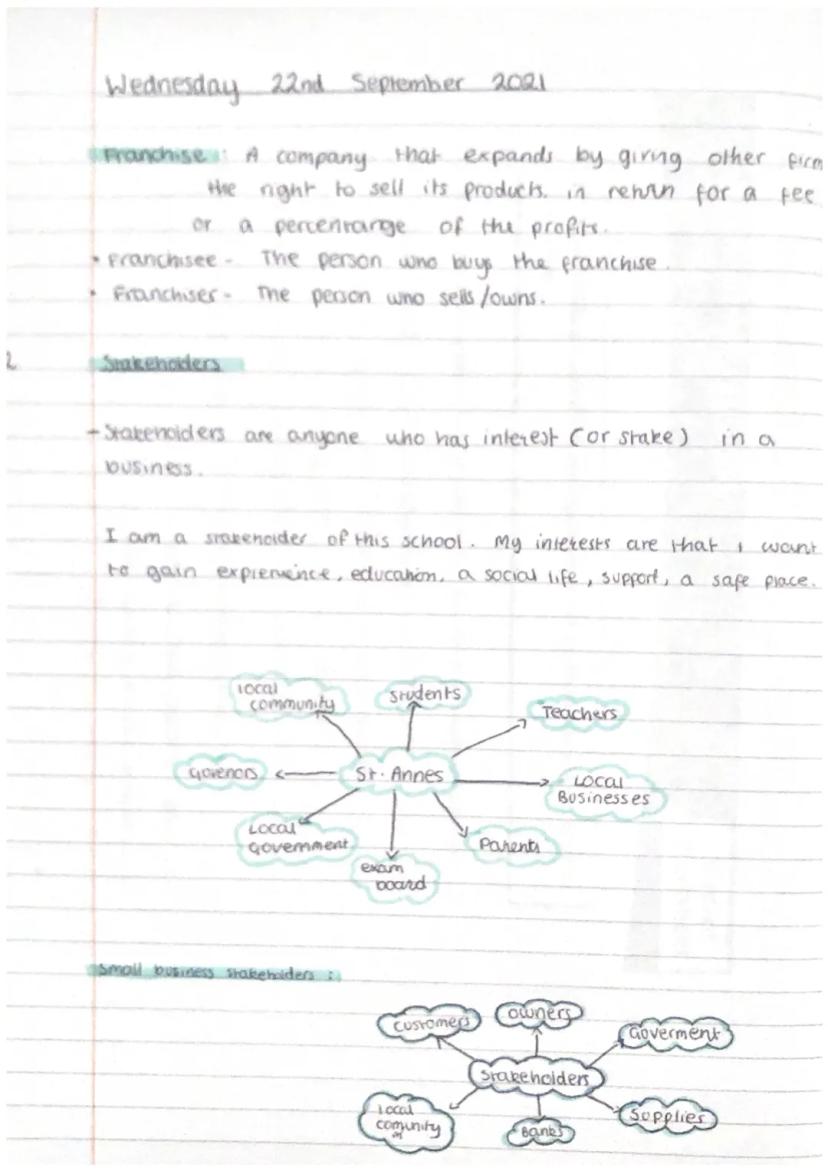 Wednesday 22nd September 2021
Franchise: A company that expands by giving other firm
the right to sell its products. in return for a fee
or a percentrange of the profits.
• Franchisee - The person who buys the franchise.
• Franchiser - The person who sells/owns.
2
Stakeholders
- Stakeholders are anyone who has interest (or stake) in a
business.
I am a stakeholder of this school. My interests are that i want
to gain expriemince, education, a social life, support, a safe place.
local
community
students
Teachers
Govenors
St. Annes
Local
Businesses
Local
Government
exam
board
Parents
Small business stakeholders :
customers
owners
Goverment
Stakeholders
local
comunity
m
Banks
Supplies